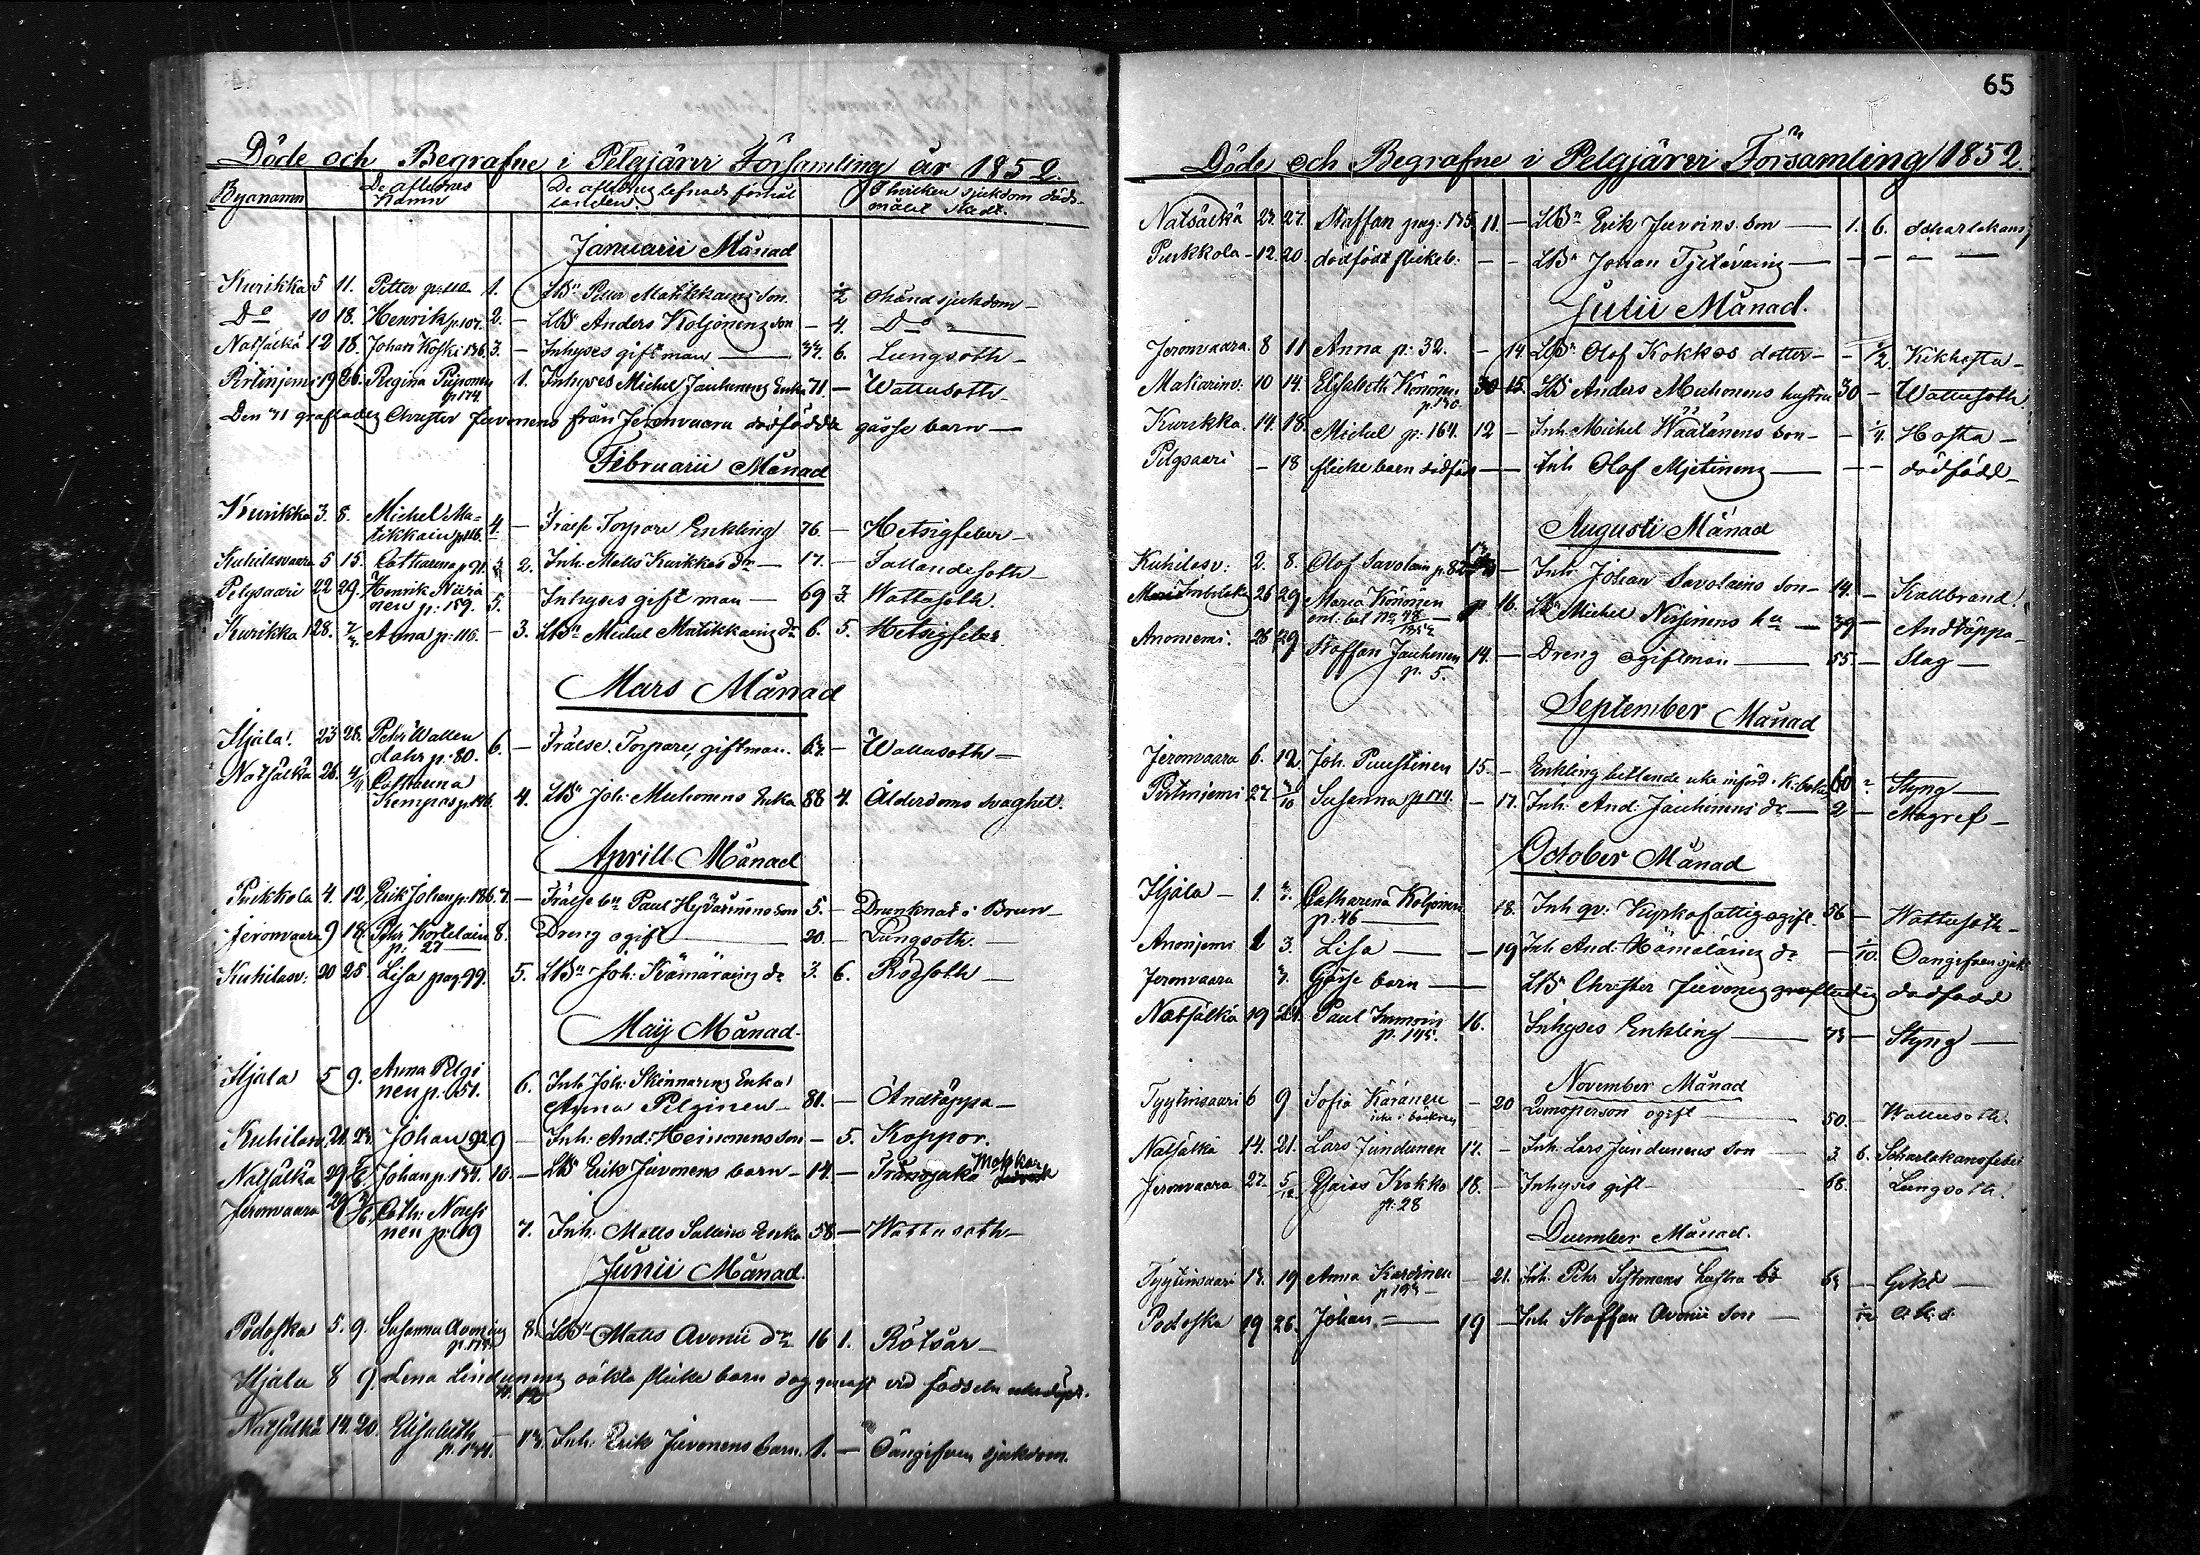 Döde och Begrafne i Pelgjärvi Församling år 1852.
Byanamn De aflednes Namn De aflednes lefnads förhållanden. I hvilken sjukdom dödsmålet skedt.
Januarii Månad
Kurikka 5 11. Petter 1. LBn Petter Matikkains son ½ okänd sjukdom
Do 10 18. Henrik p. 107. 2. — LBn Anders Koljonens son — 4. Do
Natsälkä 12 18. Johan Koski 136. 3. — Inhyses gift man — 37. 6. Lungsoth
19 26. Regina Puponen p. 174. 1. Inhyses Michel Jauhinens Enka 71 — Wattusoth
Den 31 Christer Juvonens från Jeronvaara dödfödda gosse barn
Februarii Månad
Kurikka 3. 8. Michel Matikkain p. 116. 4 — Frälse Torpare Enkling 76 — Hetsigfeber
Kuhilasvaara 5 15. Catharina p. 91. 2. Inh. Matts Kurkkos dr — 17. — Fallandesoth
Pelgsaari 22 29. Henrik p. 159. 5. Inhyses gift man — 69 3. Wattusoth.
Kurikka 28. 7/3 Anna p. 116. — 3. LBn Michel Matikkains dr 6. 5. Hetsigfeber
Mars Månad
Hjala 23 28. Pehr p. 80. 6. — Frälse Torpare, giftman. 67. — Wattusoth
Natsälkä 26. 4/4 Catharina Kempas p. 146. 4. LBn Joh. Muhonens Enka 88 4. Ålderdoms svaghet.
Aprill Månad
Purkkola 4. 12. Erik Johan p. 186. 7. — Frälse bn Paul Hyvärinens son 5. — Drunknat i Brun
Jeronvaara 9 18. Pehr Kortelain p. 27 8. Dreng ogift — 20. — Lungsoth
Kuhilasv: 20 25. Lisa pag. 99. 5. LBn Joh: Kämäräins dr 3. 6. Rödsoth
Maij Månad.
Hjala 5 9. Anna Pelginen p. 51. 6. Inh. Joh: Skinnarens Enka Anna Pelginen 81. — Andtäppa
Kuhilasv. 21. 27. Johan 92 9 — Inh: And: Heinonens son — 5. Koppor.
Natsälkä 29 Johan p. 134. 10. — LBn Erik Juvonens barn — 14. — Trånsjuka
Jeronvaara 29 Cath: Nousinen p. 19 7. Inh. Matts Enka 58 — Wattusoth
Junii Månad.
Podoska 5. 9. Susanna 8. LBn Matts Avonii dr 16 1. Rötsår
Hjala 8 9. Lena Lindunens oäkta flicke barn dog genast vid födseln
Natsälkä 14. 20. Elisabeth p. 134. — 13. Inh. Erik Juvonens barn. 1. — Oangifven sjukdom.
65
Döde och Begrafne i Pelgjärvi Församling 1852.
Natsälkä 23. 27. Staffan pag. 135 11 — LBn Erik Juvoins son — 1. 6. Scharlakans
Purkkola 12. 20. dödfödt flickeb. — — LBn Johan — — —
Julii Månad.
Jeronvaara 8 11 Anna p: 32. — 14. LBn Olof Kokkos dotter — ½ Kikhosta
Matiarinv. 10 14. Elisabeth Könönen p. 130 — 15. LBn Anders Muhonens hustru 30 — Wattusoth.
Kurikka 14. 18. Michel p. 164. 12 — Inh. Michel Wäätänens son — ¼ Hosta
Pelgsaari — 18 flicke barn dödfödt — — Inh Olof Mjetinens — — dödfödd
Augusti Månad
Kuhilasv: 2. 8. Olof Savolain p. 82 — Inh. Johan Savolains son 14. — Kallbrand.
26 29 Maria Könönen enl. bet. 16. LBn Michel Nissinens hu — 39 — Andtäppa
Anoniemi. 26 29 Staffan Jauhinen p. 5. 14. — Dreng ogiftman 55. — Slag
September Månad
Jeronvaara 6. 12. Joh. Puustinen 15. — Enkling bettlande införd i k: boken 60 — Styng
27. 3/10 Susanna p. 174 — 17. Inh. And: Jauhinens dr — 2 — Magref
October Månad
Hjala 1. 3. Catharina Koljonen p. 46 18. Inh qv: fattig ogift 56 — Wattusoth
Anonjemi 1 3. Lisa — 19 Inh And: Hämäläins dr — 1/10. Oangifven sjuk
Jeronvaara 3. Gosse barn LBn Christer Juvonens dödfödd
Natsälkä 19 24. Paul Immoin p. 145. 16. Inhyses Enkling 73 — Styng
November Månad
Tyytinsaari 6 9 Sofia Käränen icke i boken — 20 ogift 50. — Wattusoth.
Natsälkä 14. 21. Lars Jundunen 17. — Inh. Lars Jundunens son 3 6. Scharlakansfeber
Jeronvaara 27. 5/12 Kokko p. 28 18. — Inhyses gift 58. Lungsoth.
December Månad.
Tyytinsaari 13. 19 Anna p. 193 — 21. Inh. Pehr hustru — Gikt
Podoska 19 26. Johan 19 — Inh Staffan Avonii son